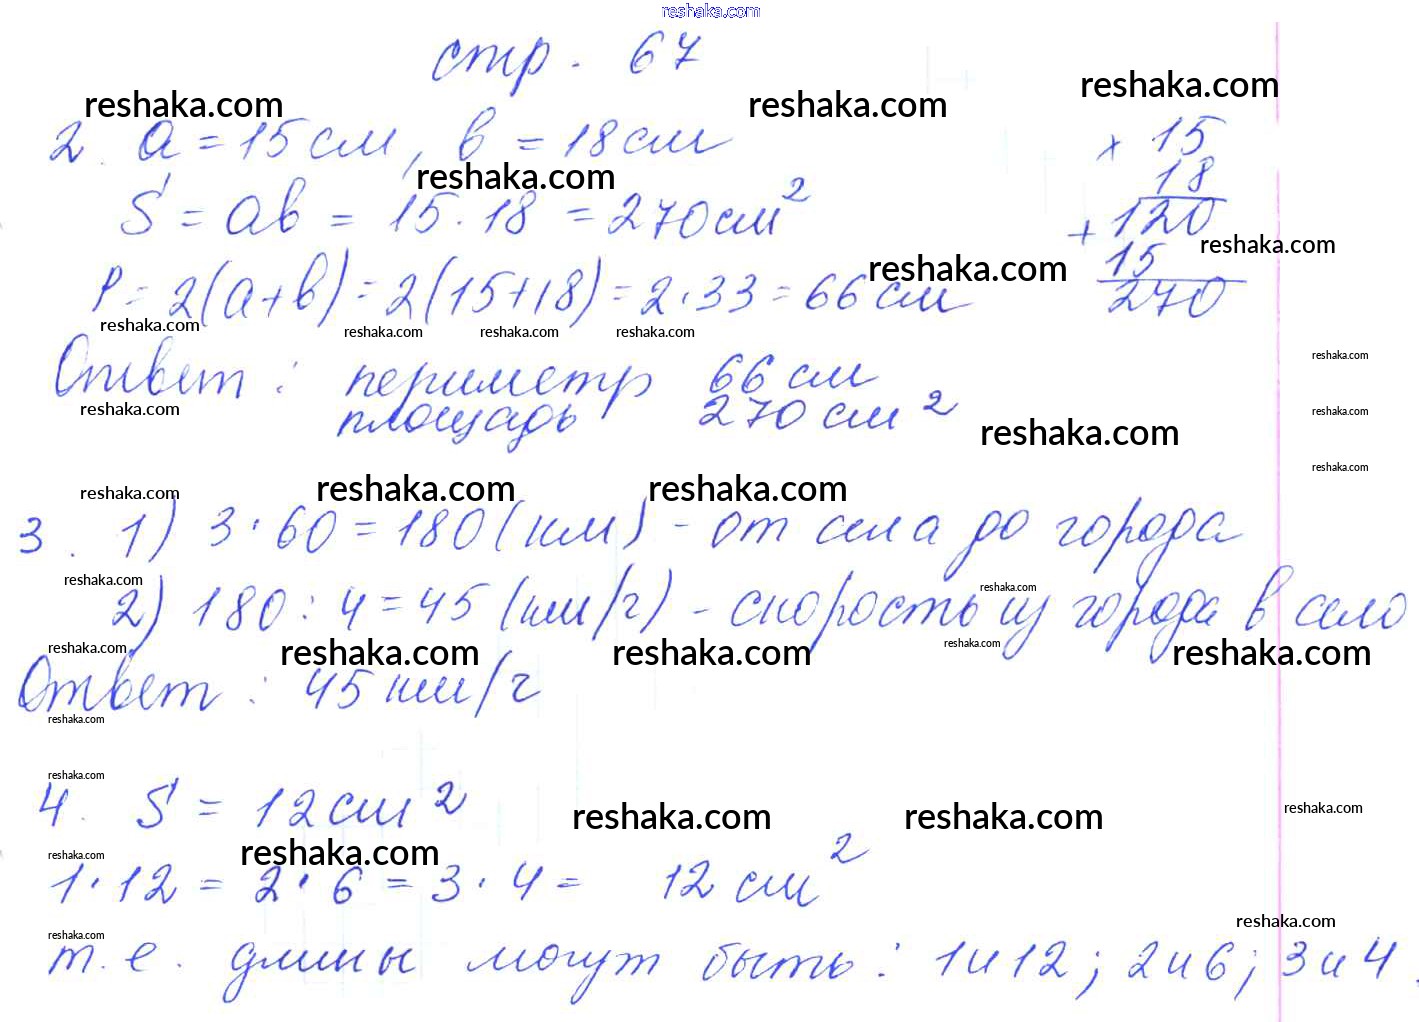 reshaka.com
стр. 67
reshaka.com reshaka.com reshaka.com
2. a = 15 см, b = 18 см
× 15
reshaka.com
18
S = ab = 15 · 18 = 270 см²
+ 120
reshaka.com
15
reshaka.com
P = 2(a+b) = 2(15+18) = 2·33 = 66 см
270
reshaka.com reshaka.com reshaka.com reshaka.com
reshaka.com
Ответ: периметр 66 см
reshaka.com reshaka.com
площадь 270 см²
reshaka.com
reshaka.com
reshaka.com reshaka.com reshaka.com
3. 1) 3·60 = 180 (км) - от села до города
reshaka.com reshaka.com
2) 180 : 4 = 45 (км/ч) - скорость из города в село
reshaka.com reshaka.com reshaka.com reshaka.com reshaka.com
Ответ: 45 км/ч
reshaka.com
reshaka.com
4. S = 12 см²
reshaka.com reshaka.com reshaka.com
reshaka.com reshaka.com
1·12 = 2·6 = 3·4 = 12 см²
reshaka.com
reshaka.com
т.е. длины могут быть: 1 и 12; 2 и 6; 3 и 4.